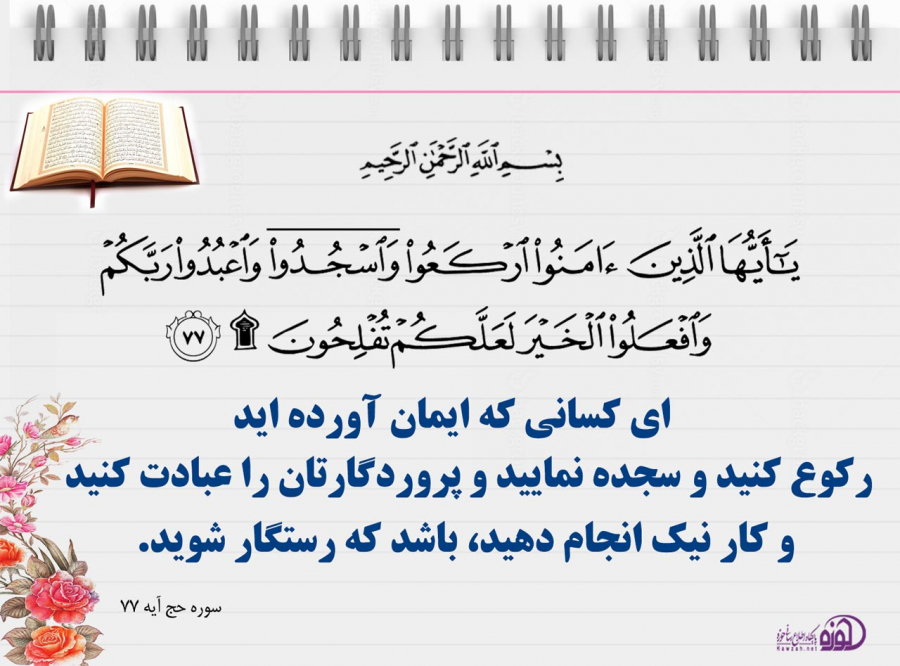 بِسْمِ ٱللَّهِ ٱلرَّحْمَٰنِ ٱلرَّحِيمِ
يَـٰٓأَيُّهَا ٱلَّذِينَ ءَامَنُوا۟ ٱرْكَعُوا۟ وَٱسْجُدُوا۟ وَٱعْبُدُوا۟ رَبَّكُمْ
وَٱفْعَلُوا۟ ٱلْخَيْرَ لَعَلَّكُمْ تُفْلِحُونَ ۩ ٧٧
ای کسانی که ایمان آورده اید
رکوع کنید و سجده نمایید و پروردگارتان را عبادت کنید
و کار نیک انجام دهید، باشد که رستگار شوید.
سوره حج آیه ۷۷
پایگاه اطلاع رسانی حوزه
Hawzah.net